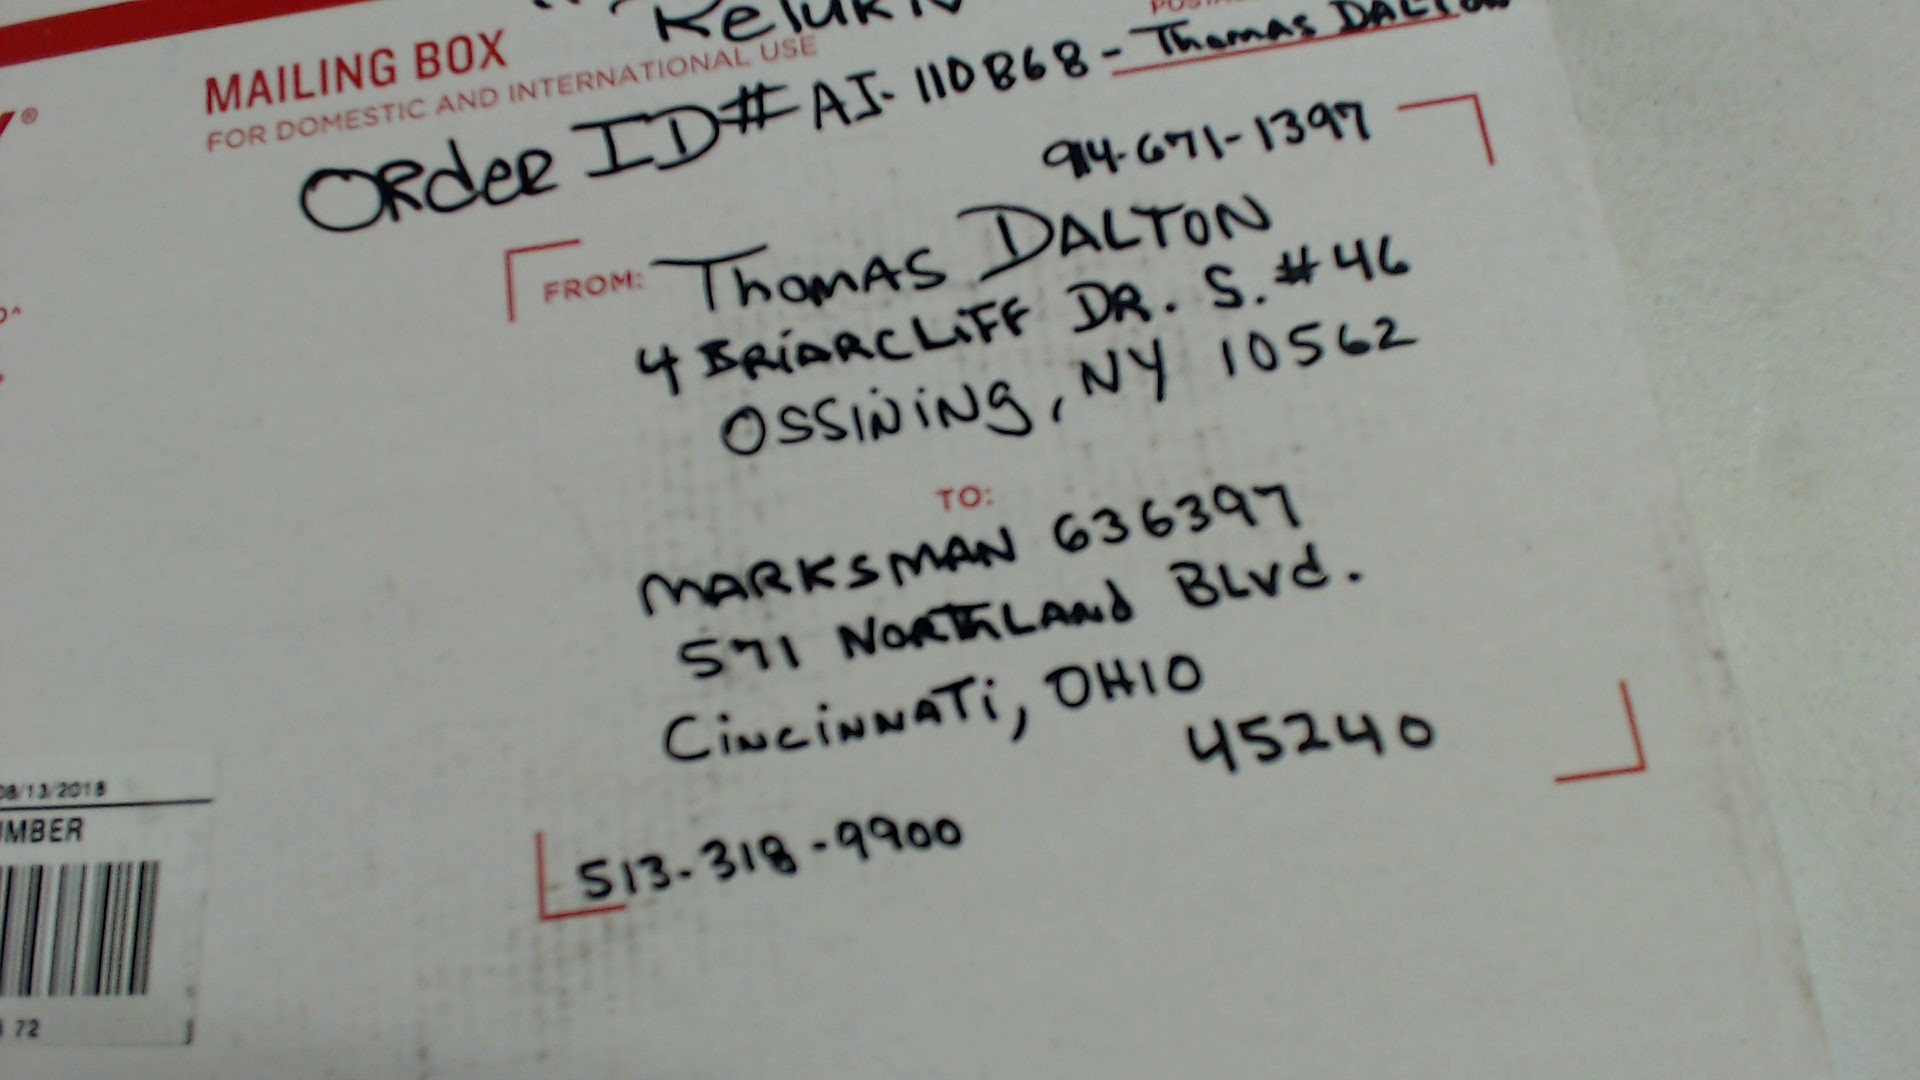 MAILING BOX
FOR DOMESTIC AND INTERNATIONAL USE
ORdeR ID# AJ-110868-Thomas DALTON
914-671-1397
FROM: ThomAS DALTON
4 BRiARCLiFF DR. S. #46
OSSiNiNg, NY 10562
TO:
MARKSMAN 636397
571 NORThLANd BLVd.
CiNCiNNATi, OHIO
45240
513-318-9900
08/13/2018
72